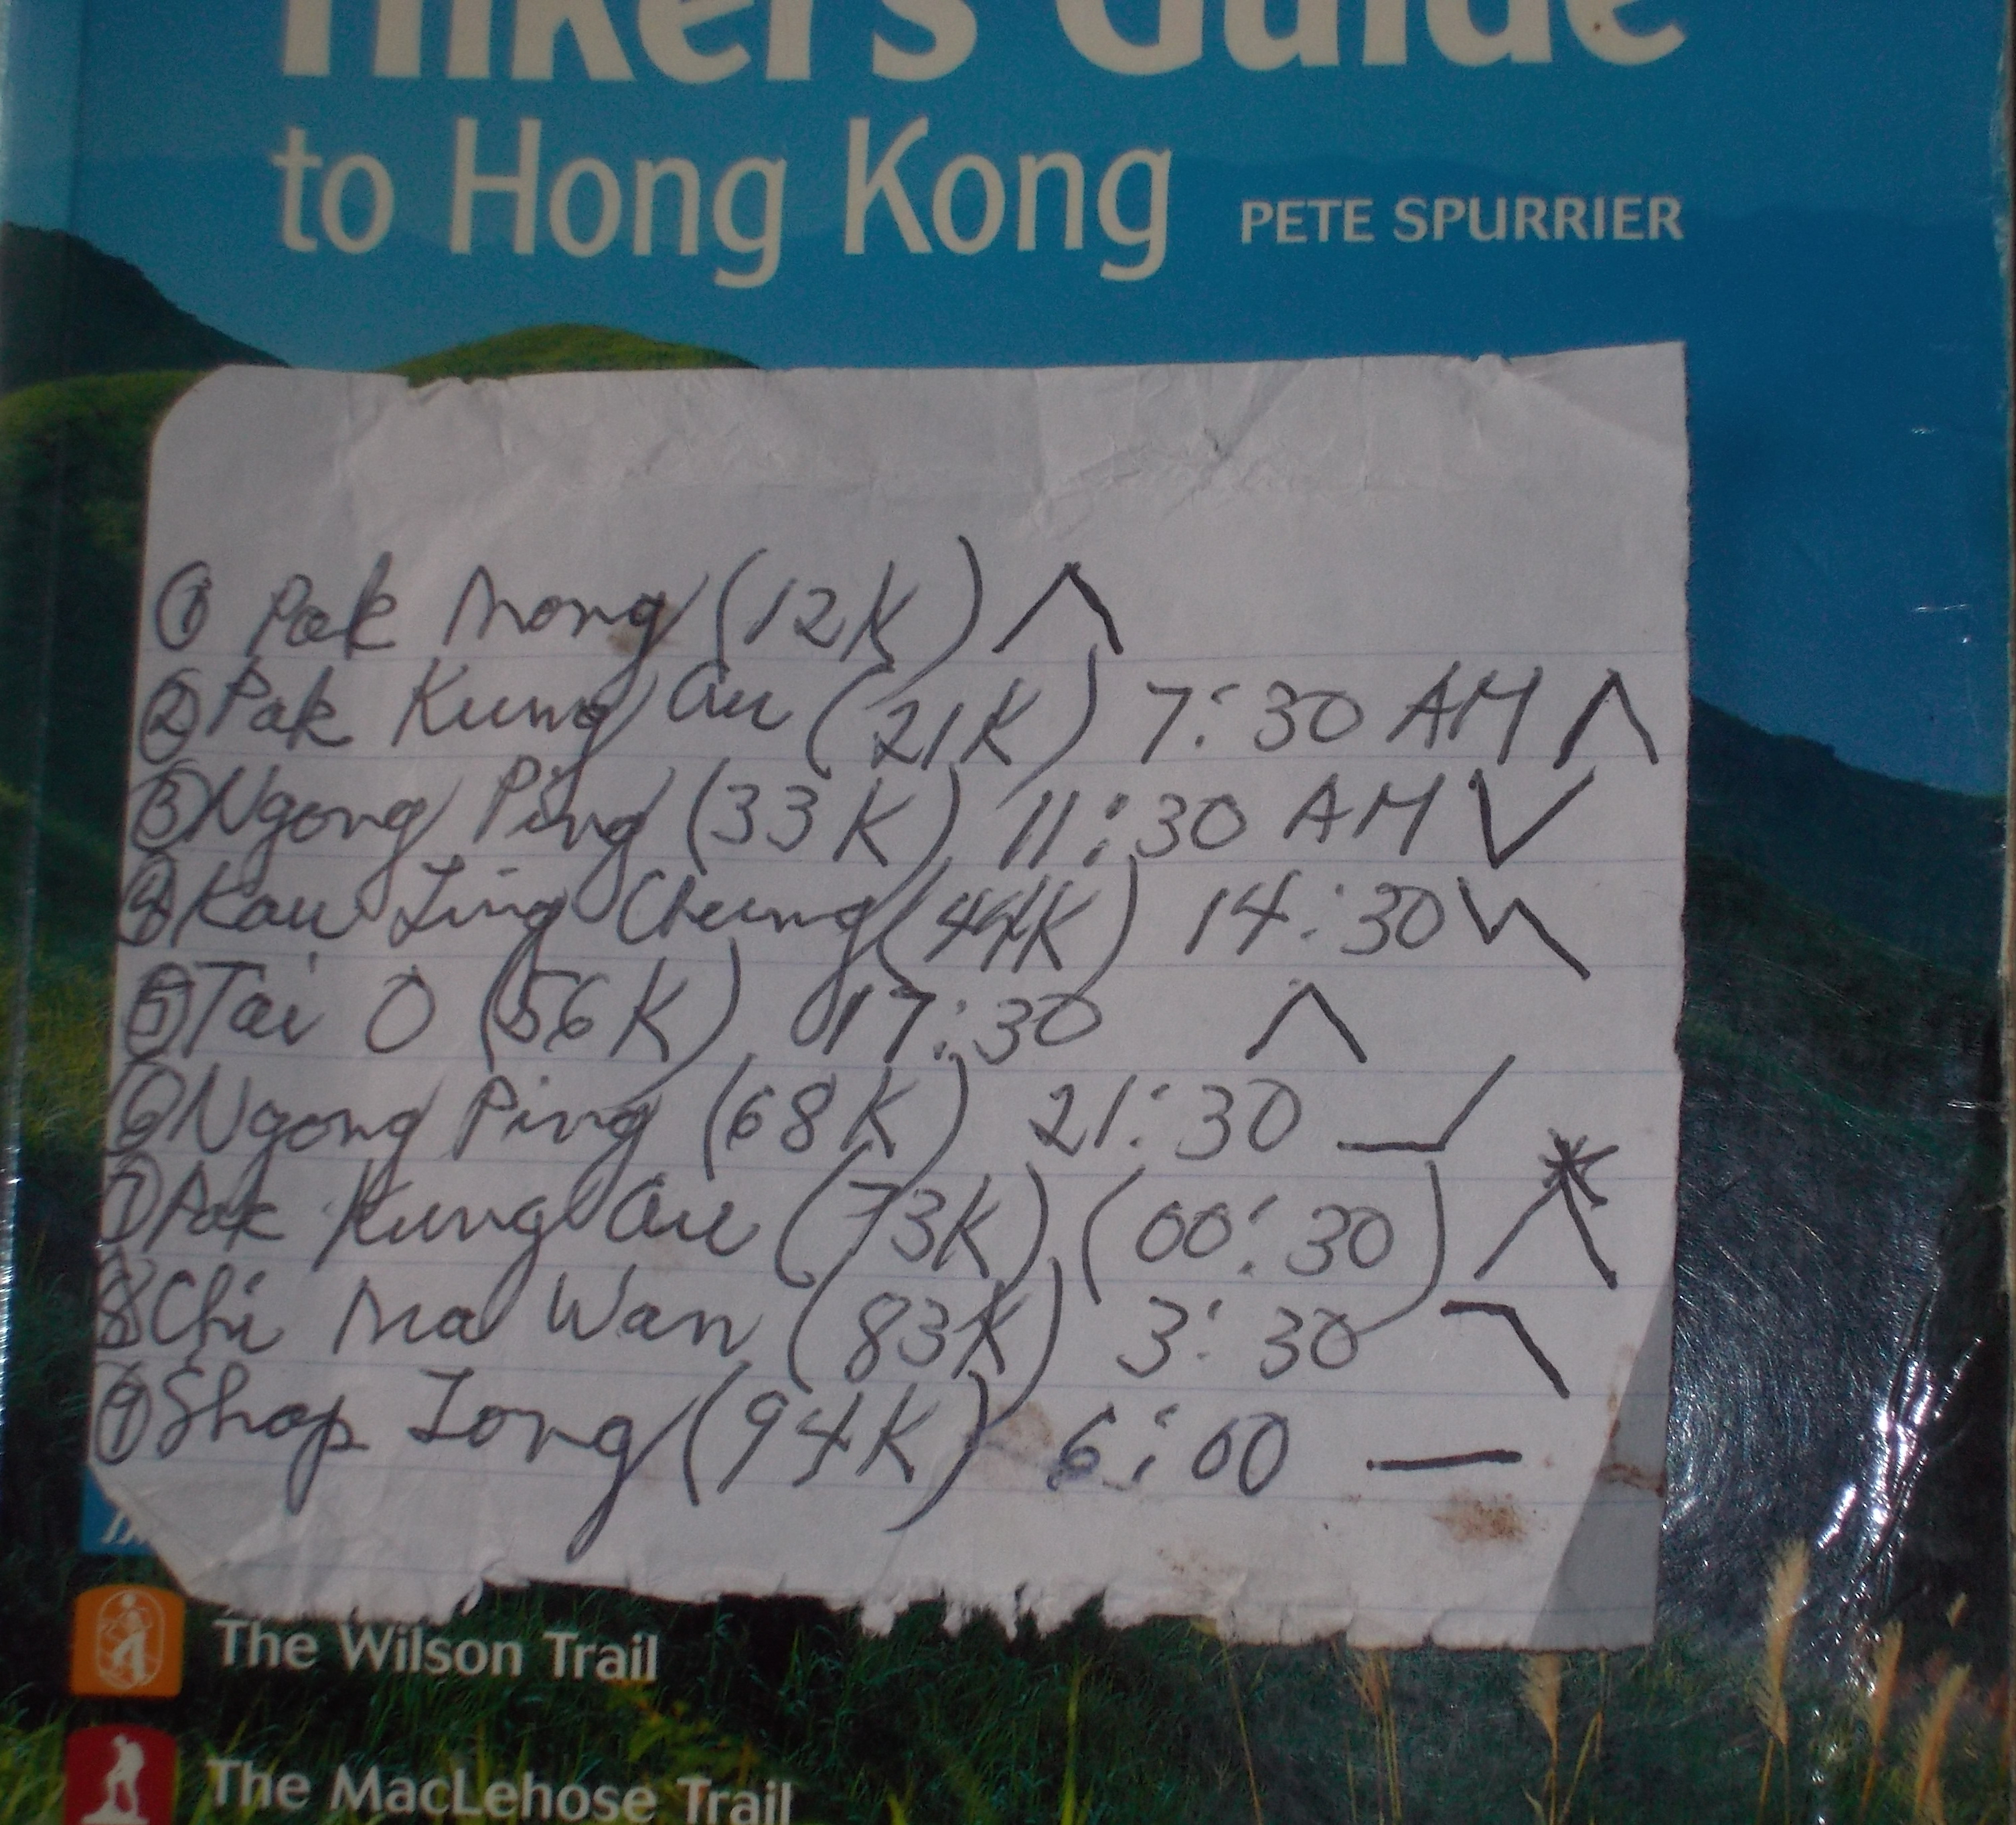 Hiker's Guide
to Hong Kong PETE SPURRIER
① Pak Mong (12K)
② Pak Kung Au (21K) 7:30 AM
③ Ngong Ping (33K) 11:30 AM
④ Kau Ling Chung (44K) 14:30
⑤ Tai O (56K) 17:30
⑥ Ngong Ping (68K) 21:30
⑦ Pak Kung Au (73K) (00:30)
⑧ Chi Ma Wan (83K) 3:30
⑨ Shap Long (94K) 6:00
The Wilson Trail
The MacLehose Trail